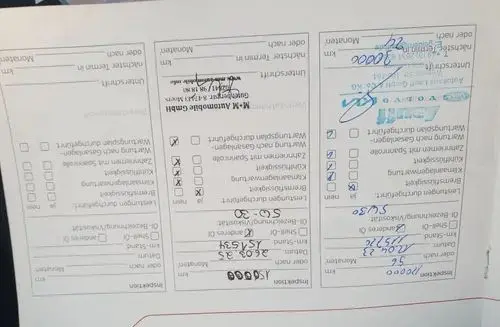 Inspektion
120000 km
oder nach 96 Monaten
Datum 12.04.23
km-Stand 115776
Shell-Öl anderes Öl
Öl-Bezeichnung/Viskosität
5W30
Leistungen durchgeführt ja nein
Bremsflüssigkeit
Klimaanlagenwartung
Kühlflüssigkeit
Zahnriemen mit Spannrolle
Wartung nach Gasanlagen-
Wartungsplan durchgeführt
VOLVO
Unterschrift
nächster Termin in
30000 km
oder nach 24 Monaten
Inspektion
150000 km
oder nach Monaten
Datum 26.03.25
km-Stand 151.534
Shell-Öl anderes Öl
Öl-Bezeichnung/Viskosität
5W-30
Leistungen durchgeführt ja nein
Bremsflüssigkeit
Klimaanlagenwartung
Kühlflüssigkeit
Zahnriemen mit Spannrolle
Wartung nach Gasanlagen-
Wartungsplan durchgeführt
M+M Automobile GmbH
Unterschrift
nächster Termin in
km
oder nach Monaten
Inspektion
km
oder nach Monaten
Datum
km-Stand
Shell-Öl anderes Öl
Öl-Bezeichnung/Viskosität
Leistungen durchgeführt ja nein
Bremsflüssigkeit
Klimaanlagenwartung
Kühlflüssigkeit
Zahnriemen mit Spannrolle
Wartung nach Gasanlagen-
Wartungsplan durchgeführt
Unterschrift
nächster Termin in
km
oder nach Monaten